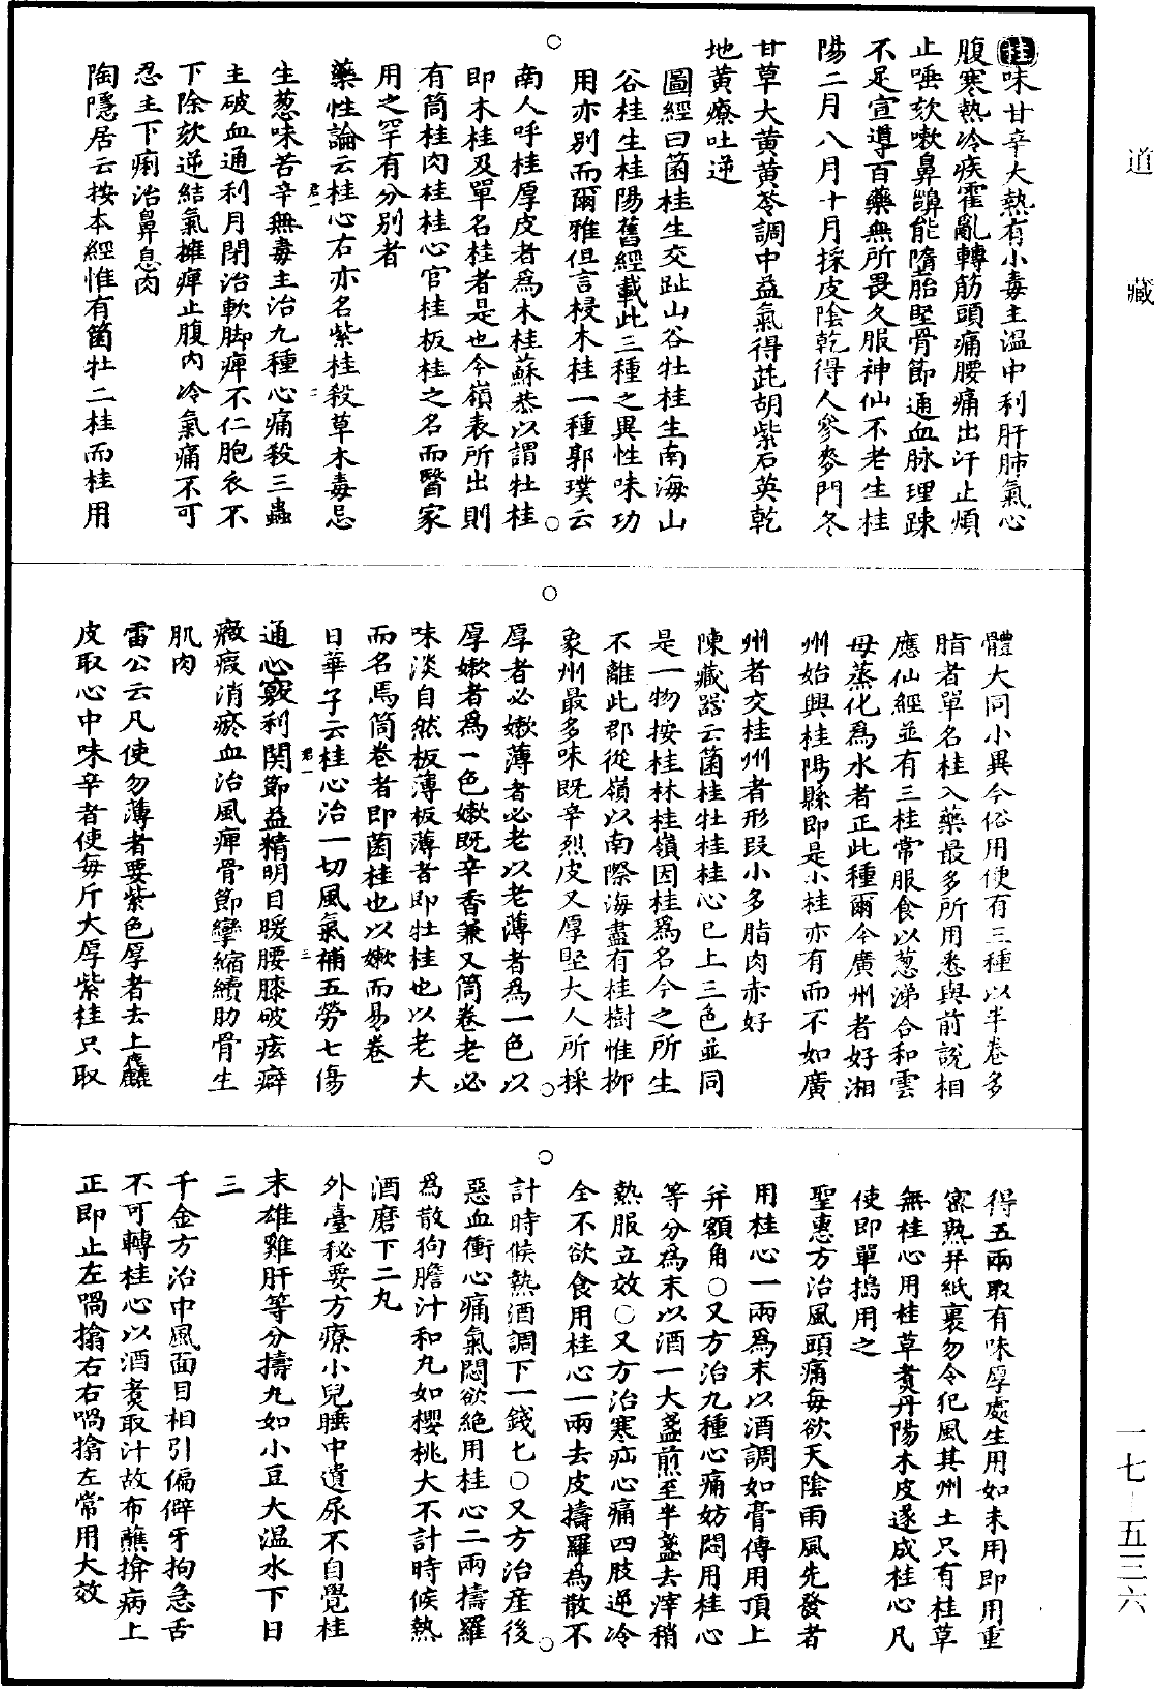 道藏
桂味甘辛大熱有小毒主温中利肝肺氣心
腹寒熱冷疾霍亂轉筋頭痛腰痛出汗止煩
止唾欬嗽鼻齆能墮胎堅骨節通血脉理踈
不足宣導百藥無所畏久服神仙不老生桂
陽二月八月十月採皮陰乾得人參麥門冬
甘草大黄黄芩調中益氣得茈胡紫石英乾
地黄療吐逆
圖經曰菌桂生交趾山谷牡桂生南海山
谷桂生桂陽舊經載此三種之異性味功
用亦别而爾雅但言梫木桂一種郭璞云
南人呼桂厚皮者爲木桂蘇恭以謂牡桂
即木桂及單名桂者是也今嶺表所出則
有筒桂肉桂桂心官桂板桂之名而醫家
用之罕有分别者
藥性論云桂心君一右亦名紫桂殺草木毒忌
生葱味苦辛無毒主治九種心痛殺三蟲
主破血通利月閉治軟脚痺不仁胞衣不
下除欬逆結氣擁痺止腹内冷氣痛不可
忍主下痢治鼻息肉
陶隱居云按本經惟有菌牡二桂而桂用
體大同小異今俗用便有三種以半卷多
脂者單名桂入藥最多所用悉與前說相
應仙經並有三桂常服食以葱涕合和雲
母蒸化爲水者正此種爾今廣州者好湘
州始興桂陽縣即是小桂亦有而不如廣
州者交桂州者形段小多脂肉赤好
陳藏器云菌桂牡桂桂心已上三色並同
是一物按桂林桂嶺因桂爲名今之所生
不離此郡從嶺以南際海盡有桂樹惟柳
象州最多味既辛烈皮又厚堅大人所採
厚者必嫩薄者必老以老薄者爲一色以
厚嫩者爲一色嫩既辛香兼又筒卷老必
味淡自然板薄板薄者即牡桂也以老大
而名焉筒卷者即菌桂也以嫩而易卷
日華子云桂心君一治一切風氣補五勞七傷
通心竅利關節益精明目暖腰膝破痃癖
癥瘕消瘀血治風痺骨節攣縮續肋骨生
肌肉
雷公云凡使勿薄者要紫色厚者去上麄
皮取心中味辛者使每斤大厚紫桂只取
得五兩取有味厚處生用如末用即用重
密熟并紙裹勿令犯風其州土只有桂草
無桂心用桂草煑丹陽木皮遂成桂心凡
使即單搗用之
聖惠方治風頭痛每欲天陰雨風先發者
用桂心一兩爲末以酒調如膏傅用頂上
并額角○又方治九種心痛妨悶用桂心
等分爲末以酒一大盞煎至半盞去滓稍
熱服立效○又方治寒疝心痛四肢逆冷
全不欲食用桂心一兩去皮擣羅爲散不
計時候熱酒調下一錢匕○又方治産後
惡血衝心痛氣悶欲絶用桂心二兩擣羅
爲散狗膽汁和丸如櫻桃大不計時候熱
酒磨下二丸
外臺秘要方療小兒睡中遺尿不自覺桂
末雄雞肝等分擣丸如小豆大温水下日
三
千金方治中風面目相引偏僻牙拘急舌
不可轉桂心以酒煑取汁故布蘸搨病上
正即止左喎搨右右喎搨左常用大效
一七—五三六